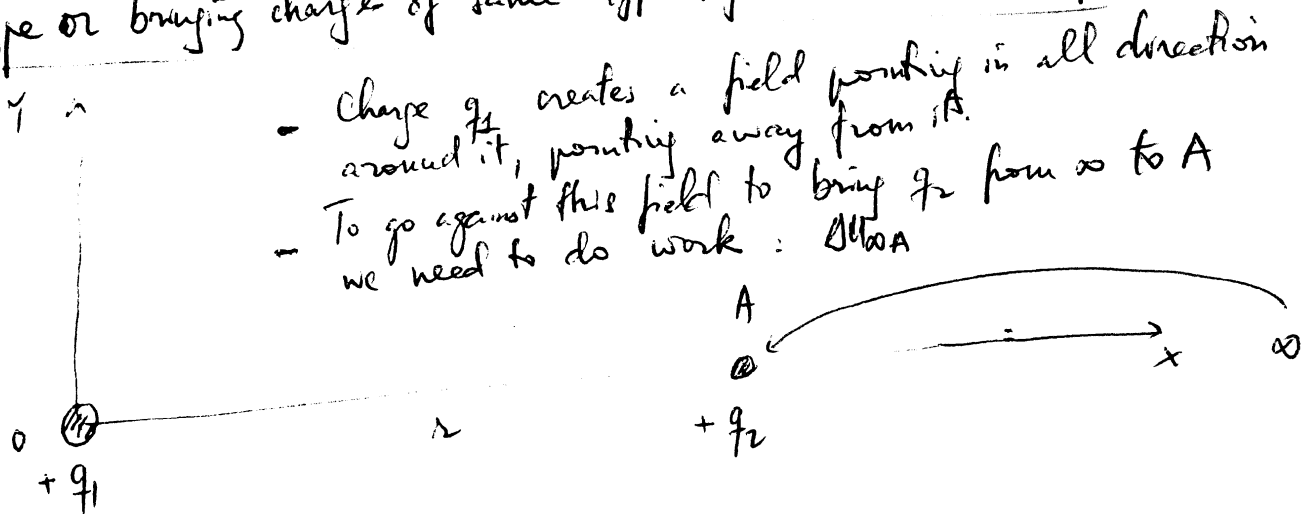 pe or bringing charges of same
Y
- Charge q₁ creates a field pointing in all direction
around it, pointing away from it.
- To go against this field to bring q₂ from ∞ to A
we need to do work : ΔU∞A
A
x
∞
0
r
+ q₂
+ q₁